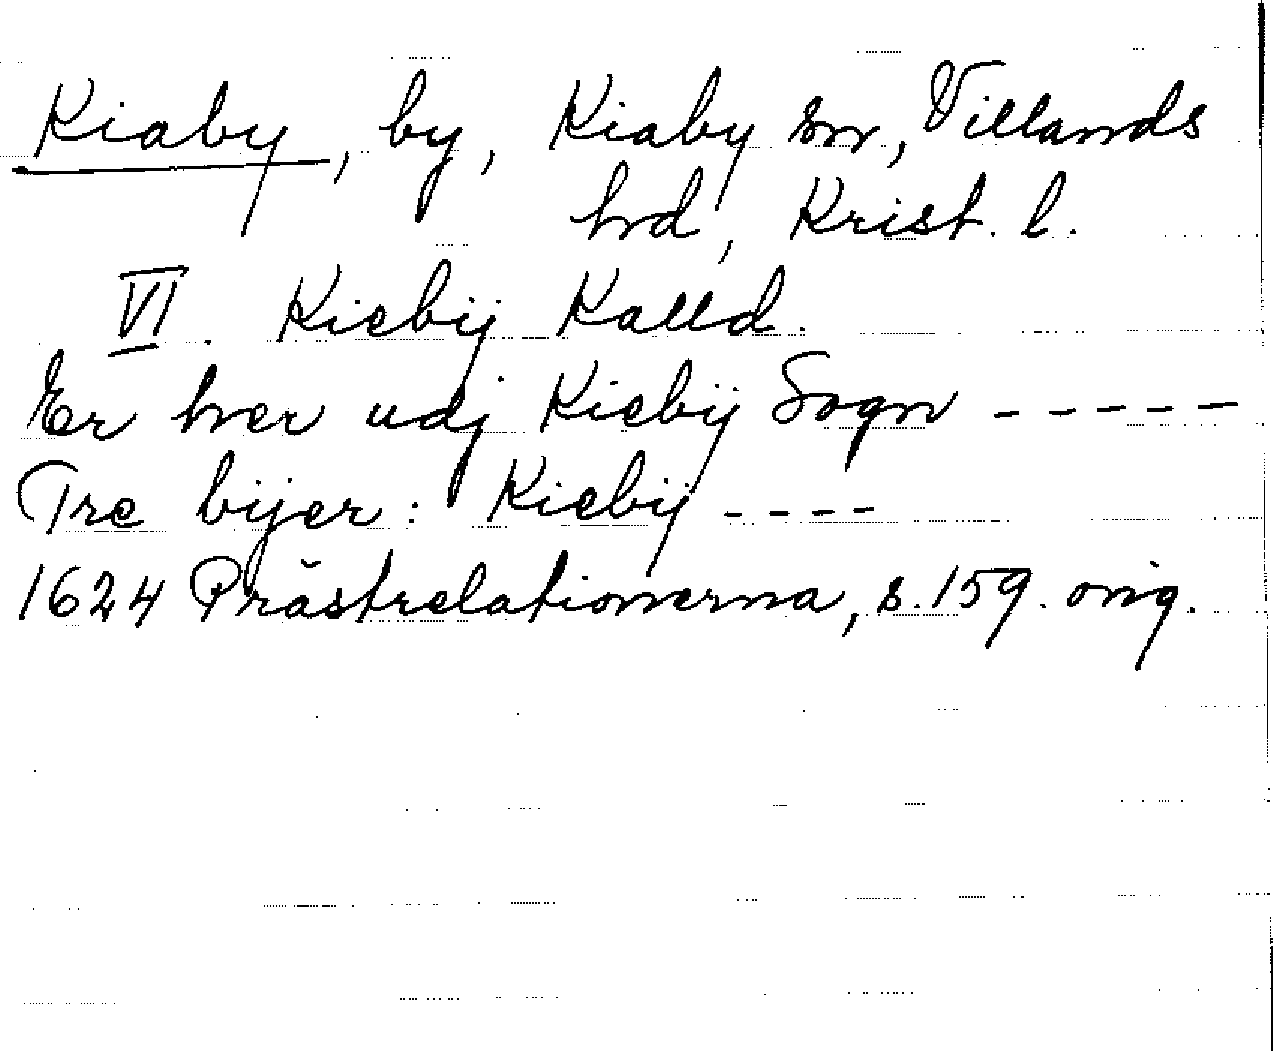 Kiaby, by, Kiaby sn, Villands
hrd, Krist. l.
VI. Kiebÿ Kalld.
Er her udj Kiebÿ Sogn -----
Tre bÿer: Kiebÿ ----
1624 Prästrelationerna, s. 159. orig.